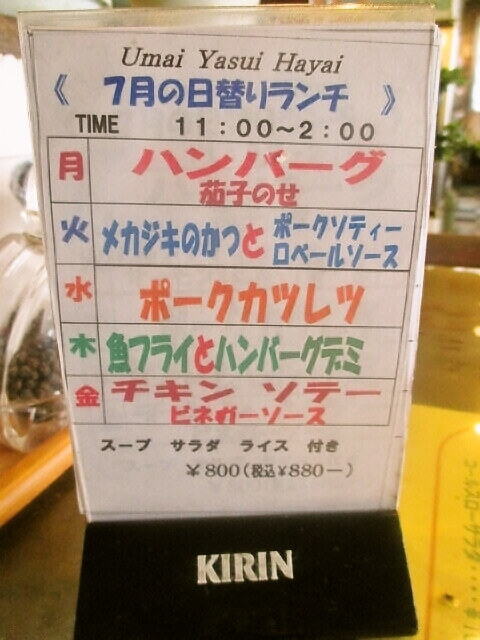 Umai Yasui Hayai
《 7月の日替りランチ 》
TIME 11:00～2:00
月 ハンバーグ
茄子のせ
火 メカジキのかつと ポークソティー
ロベールソース
水 ポークカツレツ
木 魚フライとハンバーグデミ
金 チキン ソテー
ビネガーソース
スープ サラダ ライス 付き
￥800(税込￥880－)
KIRIN